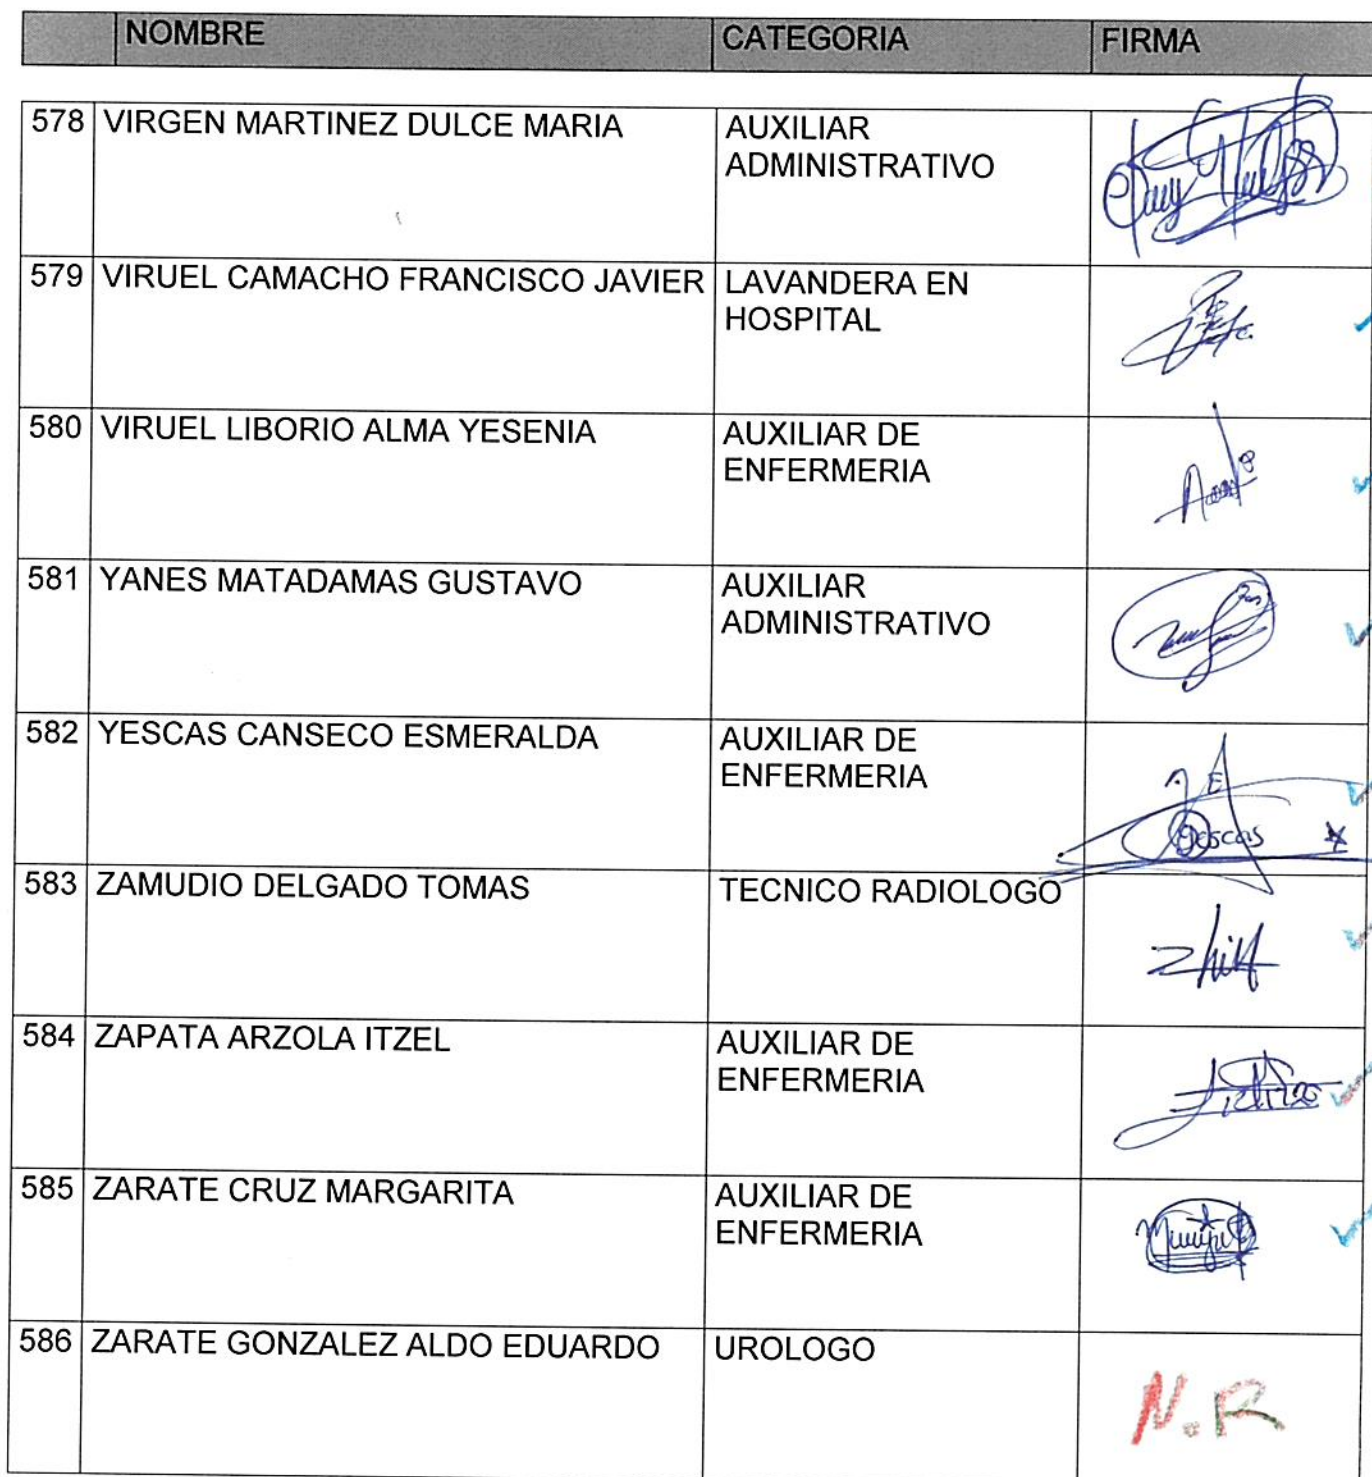 NOMBRE CATEGORIA FIRMA
578 VIRGEN MARTINEZ DULCE MARIA AUXILIAR
ADMINISTRATIVO
579 VIRUEL CAMACHO FRANCISCO JAVIER LAVANDERA EN
HOSPITAL
580 VIRUEL LIBORIO ALMA YESENIA AUXILIAR DE
ENFERMERIA
581 YANES MATADAMAS GUSTAVO AUXILIAR
ADMINISTRATIVO
582 YESCAS CANSECO ESMERALDA AUXILIAR DE
ENFERMERIA
A E
Yescas
583 ZAMUDIO DELGADO TOMAS TECNICO RADIOLOGO
584 ZAPATA ARZOLA ITZEL AUXILIAR DE
ENFERMERIA
585 ZARATE CRUZ MARGARITA AUXILIAR DE
ENFERMERIA
586 ZARATE GONZALEZ ALDO EDUARDO UROLOGO
N.R